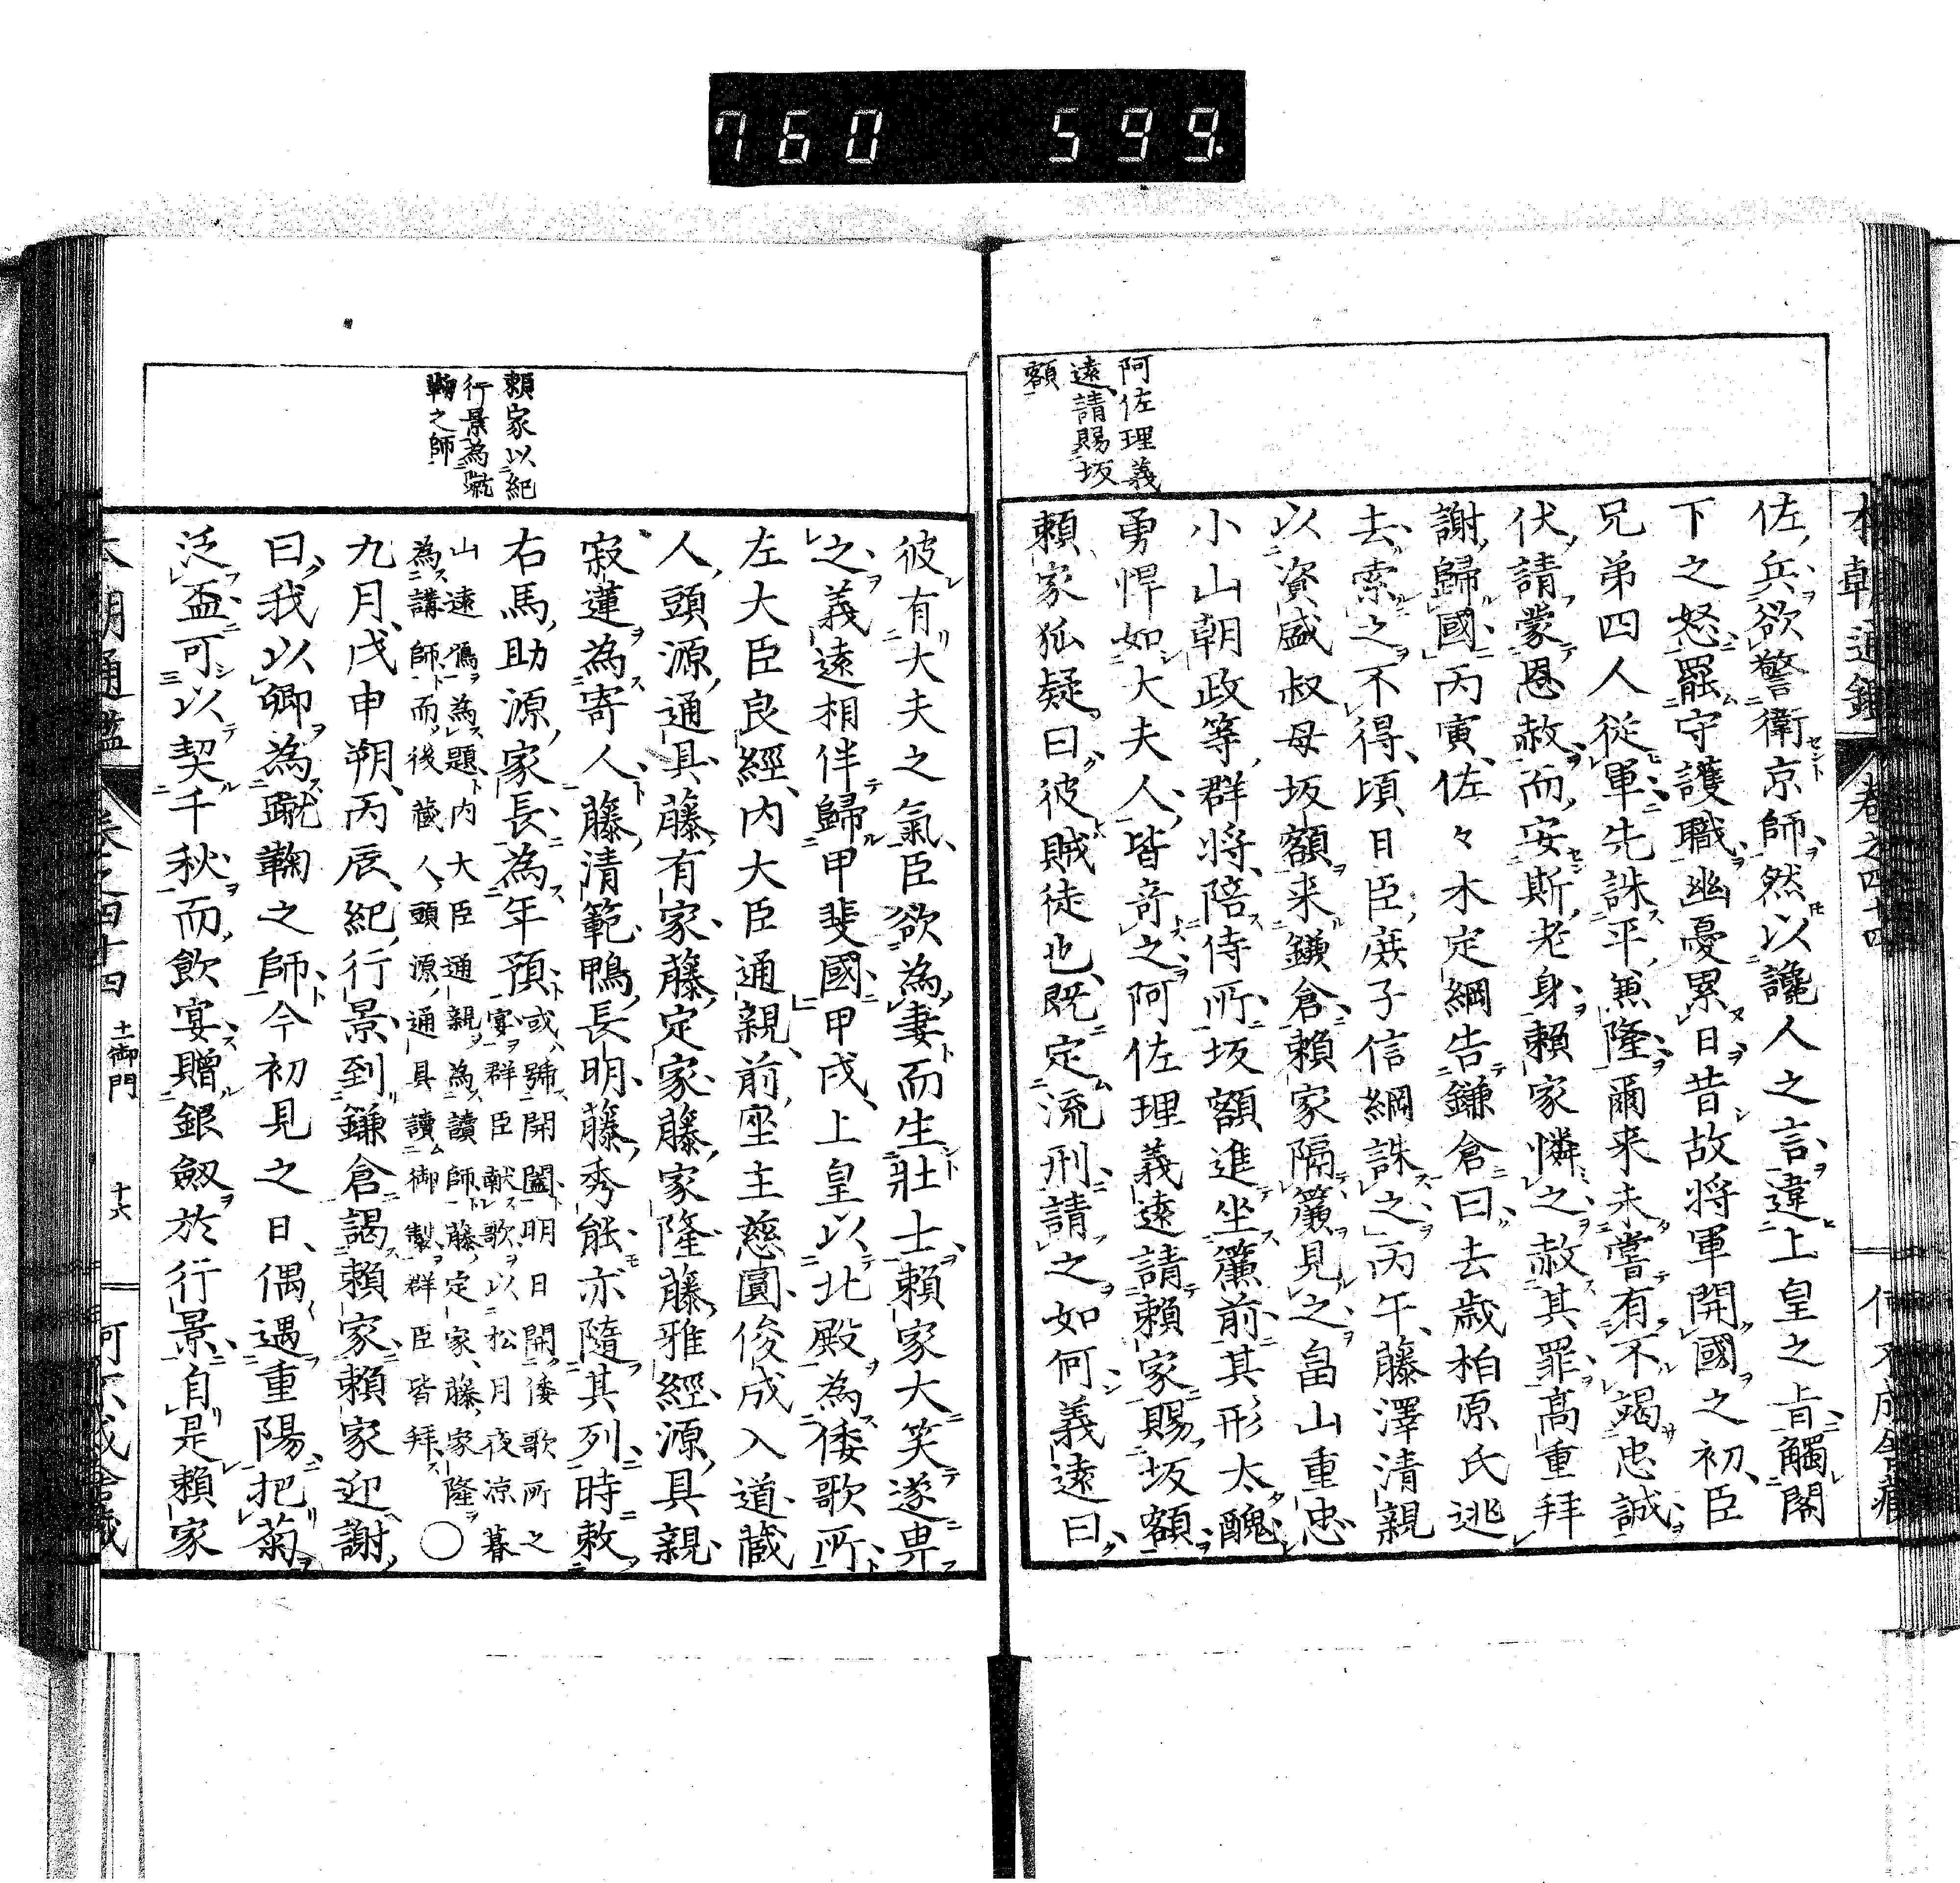 760 599.
本朝通鑑 卷之四十四
阿佐理義
遠請賜坂
額
佐兵欲警衛京師然以讒人之言違上皇之旨觸閤
下之怒罷守護職幽憂累日昔故將軍開國之初臣
兄弟四人從軍先誅平兼隆爾来未嘗有不竭忠誠
伏請蒙恩赦而安斯老身賴家憐之赦其罪高重拜
謝歸國丙寅佐々木定綱告鎌倉曰去歲柏原氏逃
去索之不得頃日臣庶子信綱誅之丙午藤澤清親
以資盛叔母坂額来鎌倉賴家隔簾見之畠山重忠
小山朝政等群將陪侍所坂額進坐簾前其形太醜
勇悍如大夫人皆奇之阿佐理義遠請賴家賜坂額
賴家狐疑曰彼賊徒也既定流刑請之如何義遠曰
賴家以紀
行景為蹴
鞠之師
彼有大夫之氣臣欲為妻而生壯士賴家大笑遂畀
之義遠相伴歸甲斐國甲戌上皇以北殿為倭歌所
左大臣良經内大臣通親前座主慈圓俊成入道藏
人頭源通具藤有家藤定家藤家隆藤雅經源具親
寂蓮為寄人藤清範鴨長明藤秀能亦隨其列時敕
右馬助源家長為年預或號開闔明日開倭歌所之
宴群臣献歌以松月夜凉暮
山遠為題内大臣通親為讀師藤定家藤家隆
為講師而後藏人頭源通具讀御製群臣皆拜〇
九月戊申朔丙辰紀行景到鎌倉謁賴家賴家迎謝
曰我以卿為蹴鞠之師今初見之日偶遇重陽把菊
泛盃可以契千秋而飲宴贈銀劔於行景自是賴家
本朝通鑑 卷之四十四 土御門 十六